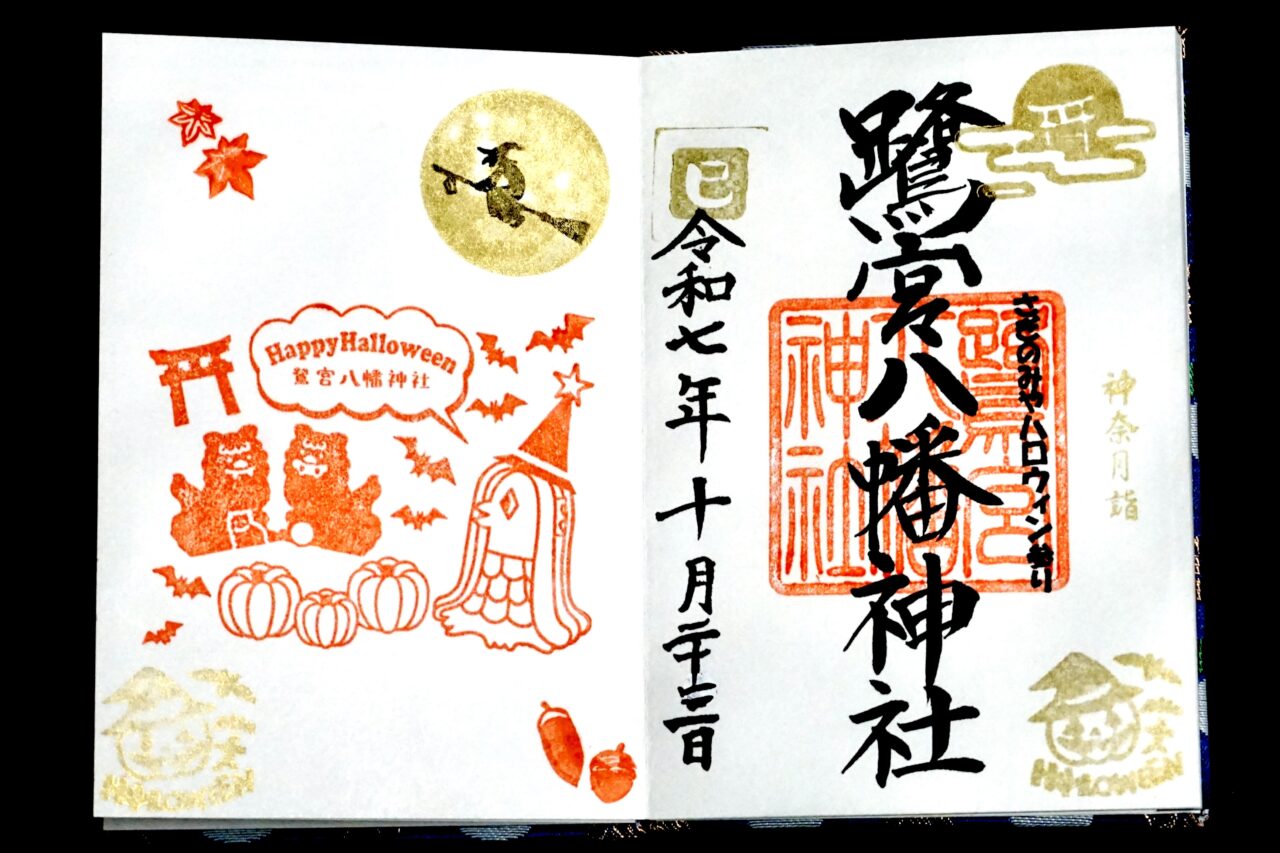 神奈月詣
さぎのみやハロウィン参り
鷺宮八幡神社
鷺宮八幡神社
巳
令和七年十月二十三日
HappyHalloween
鷺宮八幡神社
HALLOWEEN
HALLOWEEN